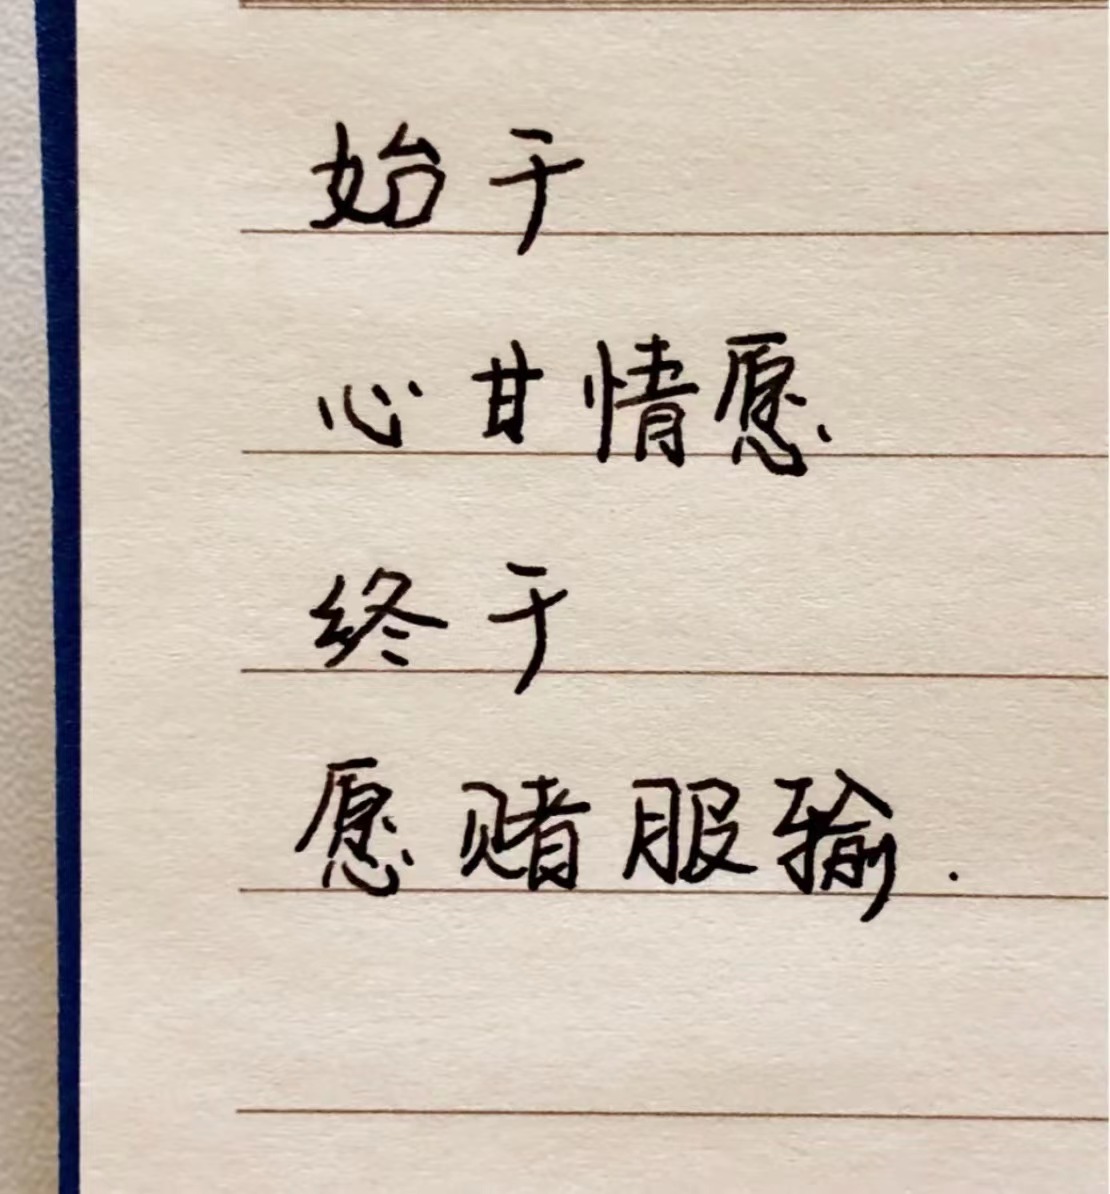 始于
心甘情愿
终于
愿赌服输.